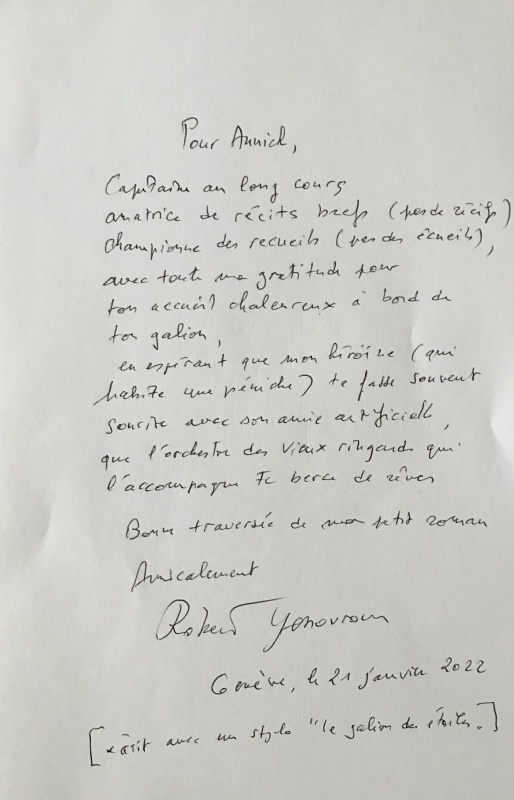 Pour Annick,
Capitaine au long cours
amatrice de récits brefs (pas de récifs)
championne des recueils (pas des écueils),
avec toute ma gratitude pour
ton accueil chaleureux à bord de
ton galion,
en espérant que mon héroïne (qui
habite une péniche) te fasse souvent
sourire avec son amie artificielle,
que l'orchestre des vieux ringards qui
l'accompagne te berce de rêves
Bonne traversée de mon petit roman
Amicalement
Robert Yessouroun
Genève, le 21 janvier 2022
[écrit avec un stylo "le galion des étoiles".]